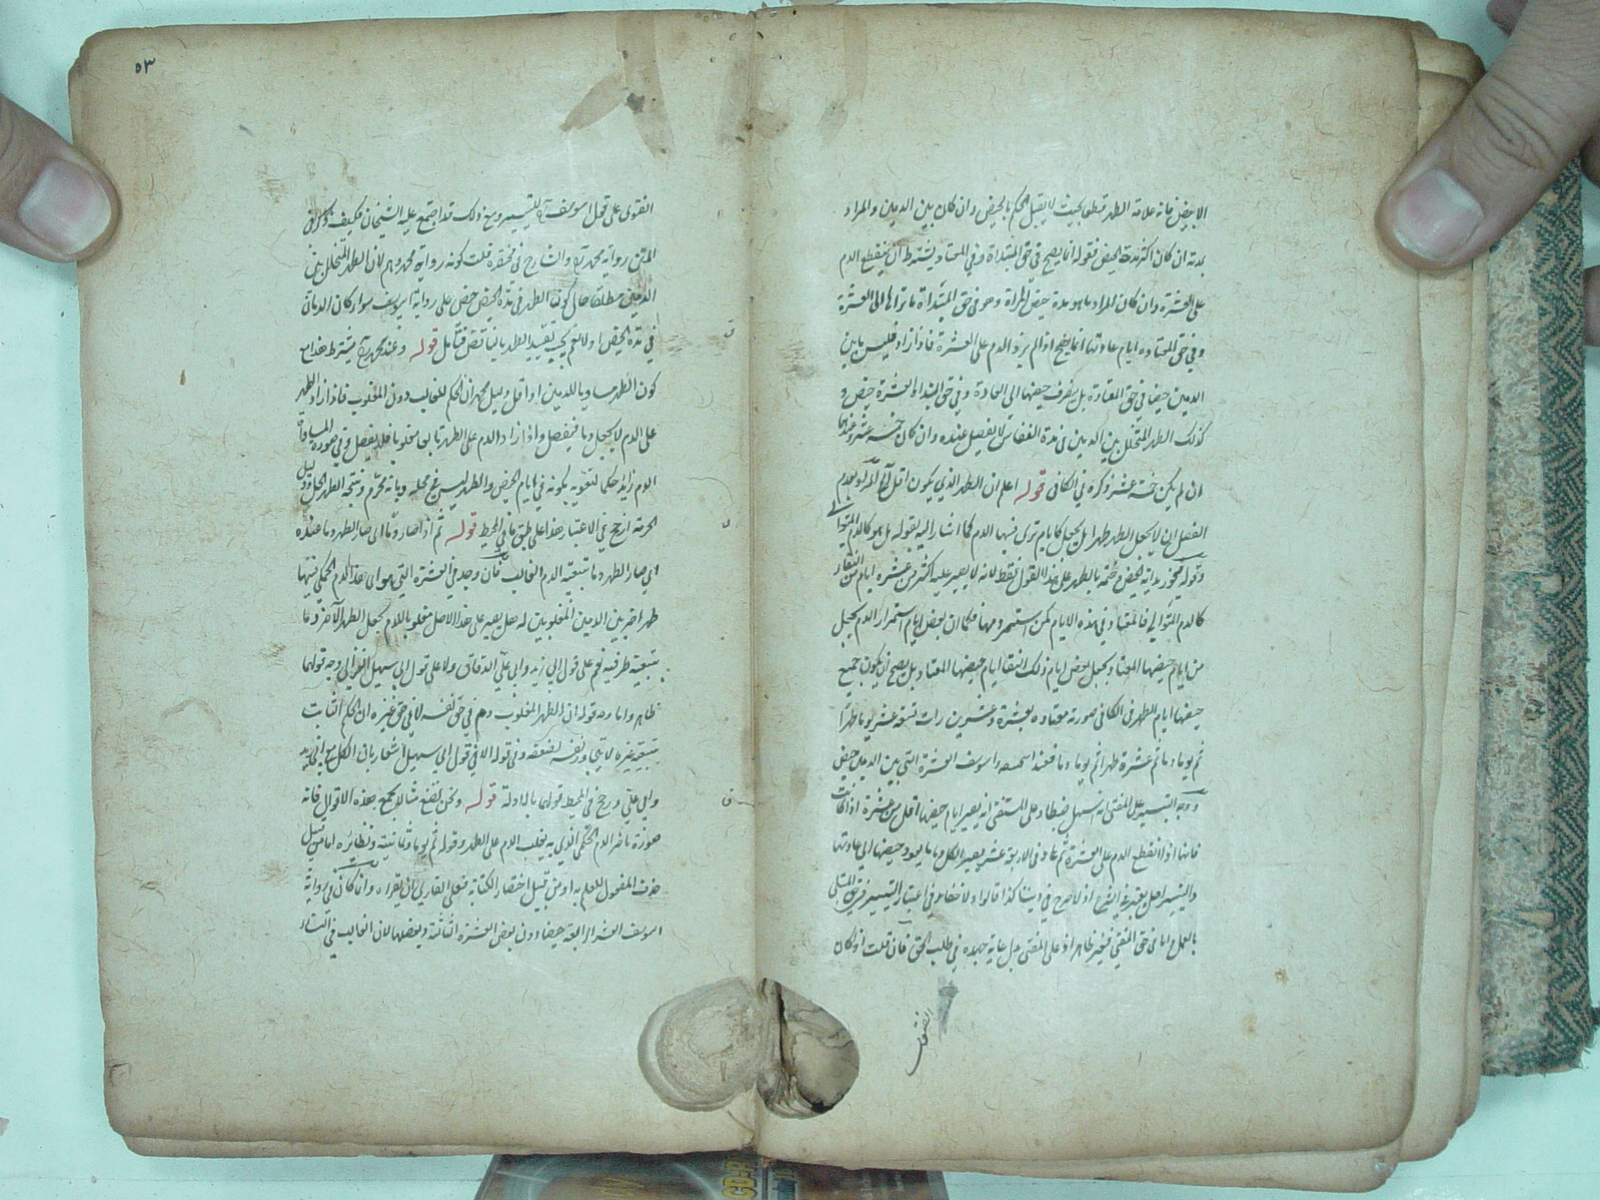 الابيض فانه علامة الطهر قبطل بحيث لا يقبل الحكم بالحيض وان كان بين الدمين والمراد
مدته ان كان اكثر مدة الحيض فقوله انما يصح في حق المبتدأة وفي المعتادة يشترط ان ينقطع الدم
على العشرة وان كان المراد ما هو مدة حيض المرأة وهو في حق المبتدأة ما تراها الى العشرة
وفي حق المعتادة ايام عادتها انما يصح اذا لم يزد الدم على العشرة فاذا زاد فليس ما بين
الدمين حيضا في حق المعتادة بل يصرف حيضها الى العادة وفي حق المبتدأة العشرة حيض و
كذلك الطهر المتخلل بين الدمين في مدة النفاس لا يفصل عنده وان كان خمسة عشر وعندهما
ان لم يكن خمسة عشر ذكره في الكافي قوله اعلم ان الطهر الذي يكون اقل
الفصل ان لا يجعل الطهر طهرا بل يجعل كايام ترى فيها الدم كما اشار اليه بقوله بل هو كالدم المتوالي
وقوله فيجوز بداية الحيض وختمه بالطهر على هذا القول فقط لانه لا يصير عليه اكثر من عشرة ايام
كالدم المتوالي فالمعتاد في هذه الايام كمن استمر دمها فكما ان بعض ايام استمرار الدم يجعل
من ايام حيضها المعتاد يجعل بعض ايام ذلك النقاء ايام حيضها المعتاد بل يصح ان يكون جميع
حيضها ايام الطهر في الكافي صورته معتادة بعشرة وعشرين رات تسعة عشر يوما طهرا
ثم يوما دما ثم عشرة طهرا ثم يوما دما فعند ابي يوسف العشرة التي بين الدمين حيض
ووجه التيسير على المفتي انه يسهل ضبطا وعلى المستفتي انه يصير ايام حيضها اقل من عشرة اذا كانت
فانها اذا انقطع الدم على العشرة ثم عاد في الاربعة عشر يصير الكل دما ويعود حيضها الى عادتها
والتيسير اصل يعتبر في الشرع اذ لا حرج في ديننا كذا قالوا ولا خفاء في اعتبار التيسير في حق المبتلى
بالعمل اما في حق المفتي فغير ظاهر اذ على المفتي بذل غاية جهده في طلب الحق فان قلت اذا كان
الفتوى
٥٣
الفتوى على قول ابي يوسف للتيسير ومع ذلك قد اجتمع عليه الشيخان فكيف ذكر في
المتن رواية محمد والشارح في مختصره قلت كونه رواية محمد وهم لان الطهر المتخلل بين
الدمين مطلقا حال كون الطهر في مدة الحيض حيض على رواية ابي يوسف سواء كان الدمان
في مدة الحيض او لا فلم يجب تقييد الطهر بالناقص فتأمل قوله وعند محمد يشترط هذا مع
كون الطهر مساويا للدمين او اقل دليل محمد ان الحكم للغالب دون المغلوب فاذا زاد الطهر
على الدم لا يجعل دما فيفصل واذا زاد الدم على الطهر يكون مغلوبا فلا يفصل وفي صورة المساواة
الدم زائد حكما لتقويه بكونه في ايام الحيض والطهر ليس في محله وبانه محرم ونتيجة الطهر الحل ودليل
الحرمة ارجح في الاعتبار هذا على طبق ما في المحيط قوله ثم اذا صار دما اى صار الطهر دما عنده
اى صار الطهر دما بتبعية الدم الغالب فان وجد في العشرة التي هو اى هذا الدم الحكمي فيها
طهر اخر بين الدمين المغلوبين له هل يصير على هذا الاصل مغلوبا بالدم يجعل الطهر الآخر دما
بتبعية طرفيه نعم على قول ابي زيد وابي علي الدقاق ولا على قول ابي سهيل الغزالي وجه قولهما
ظاهر واما وجه قوله ان الطهر المغلوب دم في حق نفسه لا في حق غيره لان الحكم الثابت
بتبعية غيره لا يتجاوز نفسه لضعفه وفي قوله الا في قول ابي سهيل اشعار بان الكل سوى ابي زيد
وابي علي ورجح في المحيط قولهما بالدلالة قوله ونحن نضع مثالا يجمع هذه الاقوال فانه
صورة ما مر الدم الحكمي الذي به يغلب الدم على الطهر وقوله ثم يوما وثمانية ونظائره اما من قبيل
حذف المفعول للعلم به او من قبيل اختصار الكتابة فعلى القاري ان يقرأه وانما كان في رواية
ابي يوسف العشرة الرابعة حيضا دون بعض العشرة الثالثة وبعضها لان الغالب في